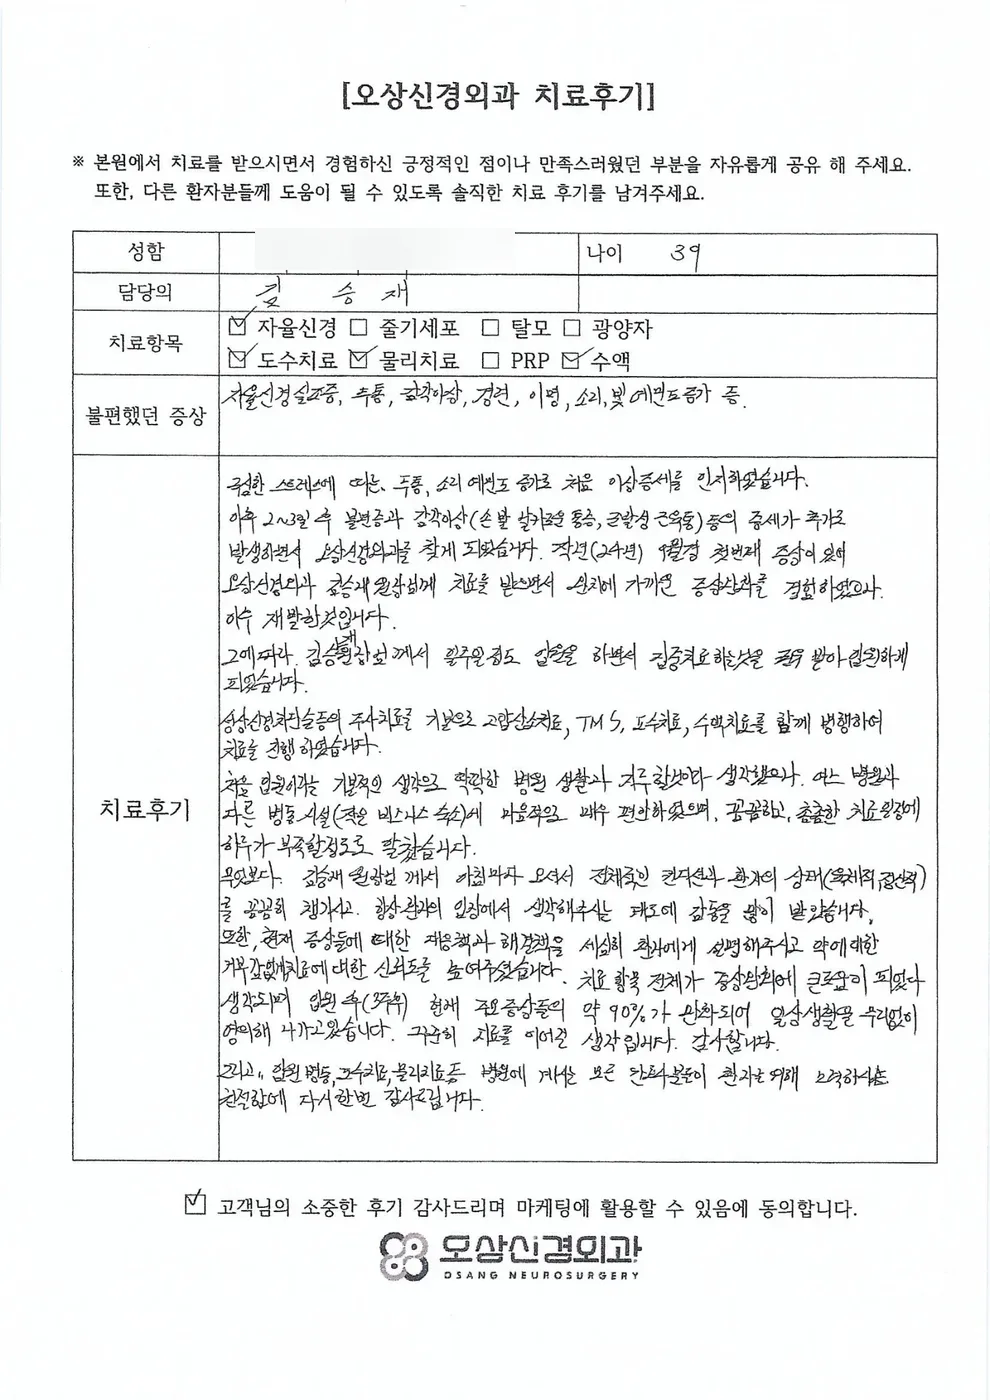 [오상신경외과 치료후기]
※ 본원에서 치료를 받으시면서 경험하신 긍정적인 점이나 만족스러웠던 부분을 자유롭게 공유 해 주세요.
또한, 다른 환자분들께 도움이 될 수 있도록 솔직한 치료 후기를 남겨주세요.
성함 나이 39
담당의 김 승 재
치료항목
☑ 자율신경 □ 줄기세포 □ 탈모 □ 광양자
☑ 도수치료 ☑ 물리치료 □ PRP ☑ 수액
불편했던 증상
자율신경실조증, 두통, 감각이상, 경련, 이명, 소리, 빛 예민도증가 등.
치료후기
극심한 스트레스에 따른 두통, 소리 예민도 증가로 처음 이상증세를 인지하였습니다.
이후 2~3일 후 불면증과 감각이상(손 발 날카로운 통증, 근육통) 등의 증세가 추가로
발생하면서 오상신경외과를 찾게 되었습니다. 작년(24년) 9월경 첫번째 증상이 있어
오상신경외과 김승재 원장님께 치료를 받으면서 완치에 가까운 증상완화를 경험하였으나.
이후 재발한것입니다.
그에따라 김승재원장님께서 일주일정도 입원을 하면서 집중치료하는것을 권유 받아 입원하게
되었습니다.
성상신경차단술등의 주사치료를 기본으로 고압산소치료, TMS, 도수치료, 수액치료를 함께 병행하여
치료를 진행 하였습니다.
처음 입원이라는 기본적인 생각으로 딱딱한 병원 생활과 지루할것이라 생각했으나. 여느 병원과
다른 병동시설(작은 비즈니스 숙소)에 마음적으로 매우 편안하였으며, 꼼꼼하고, 촘촘한 치료일정에
하루가 부족할정도로 알찼습니다.
무엇보다. 김승재 원장님 께서 아침마다 오셔서 전체적인 컨디션과 환자의 상태(육체적, 정신적)
를 꼼꼼히 챙기시고. 항상 환자의 입장에서 생각해주시는 태도에 감동을 많이 받았습니다.
또한, 현재 증상들에 대한 대응책과 해결책을 세심히 환자에게 설명해주시고 약에대한
거부감없게 치료에 대한 신뢰도를 높여주셨습니다. 치료 항목 전체가 증상완화에 큰도움이 되었다
생각되며 입원 후(3주뒤) 현재 주요증상들의 약 90%가 완화되어 일상생활을 무리없이
영위해 나가고있습니다. 꾸준히 치료를 이어갈 생각입니다. 감사합니다.
그리고, 입원병동, 도수치료, 물리치료등 병원에 계시는 모든 분들이 환자를 위해 노력하시는
친절함에 다시한번 감사드립니다.
☑ 고객님의 소중한 후기 감사드리며 마케팅에 활용할 수 있음에 동의합니다.
오상신경외과
OSANG NEUROSURGERY